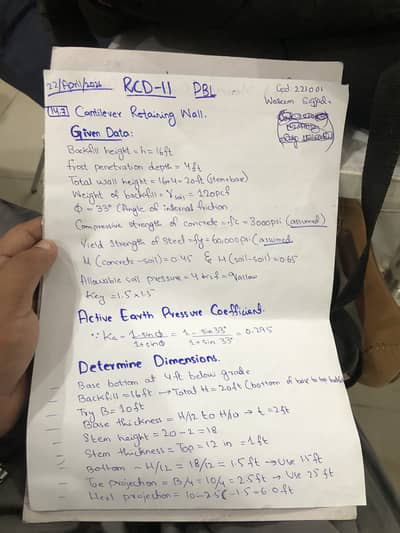 22/April/2026 RCD-II PBL
Cod: 221001
Waseem Sajjad.
14.7 Cantilever Retaining Wall.
Given Data:
Backfill height = h = 16ft
Frost penetration depth = 4ft
Total wall height = 16+4 = 20ft (stem+base)
Weight of backfill = γsoil = 120pcf
Φ = 33° (Angle of internal friction
Compressive strength of concrete = f'c = 3000psi (assumed)
Yield Strength of Steel = fy = 60,000psi (assumed
μ (concrete-soil) = 0.45 & μ (soil-soil) = 0.65
Allowable soil pressure = 4 = qallow
Key = 1.5 x 1.5
Active Earth Pressure Coefficient.
∵ Ka = 1-sinΦ/1+sinΦ = 1-sin33°/1+sin 33° = 0.295
Determine Dimensions.
Base bottom at 4ft below grade
Backfill = 16ft → Total H = 20ft (bottom of base to top
Try B = 10ft
Base thickness = H/12 to H/10 → t = 2ft
Stem height = 20-2 = 18
Stem thickness = Top = 12 in = 1ft
Bottom ~ H/12 = 18/12 = 1.5ft → Use 1.5ft
Toe projection = B/4 = 10/4 = 2.5ft → Use 2.5 ft
Heel projection = 10-2.5-1.5 = 6.0ft